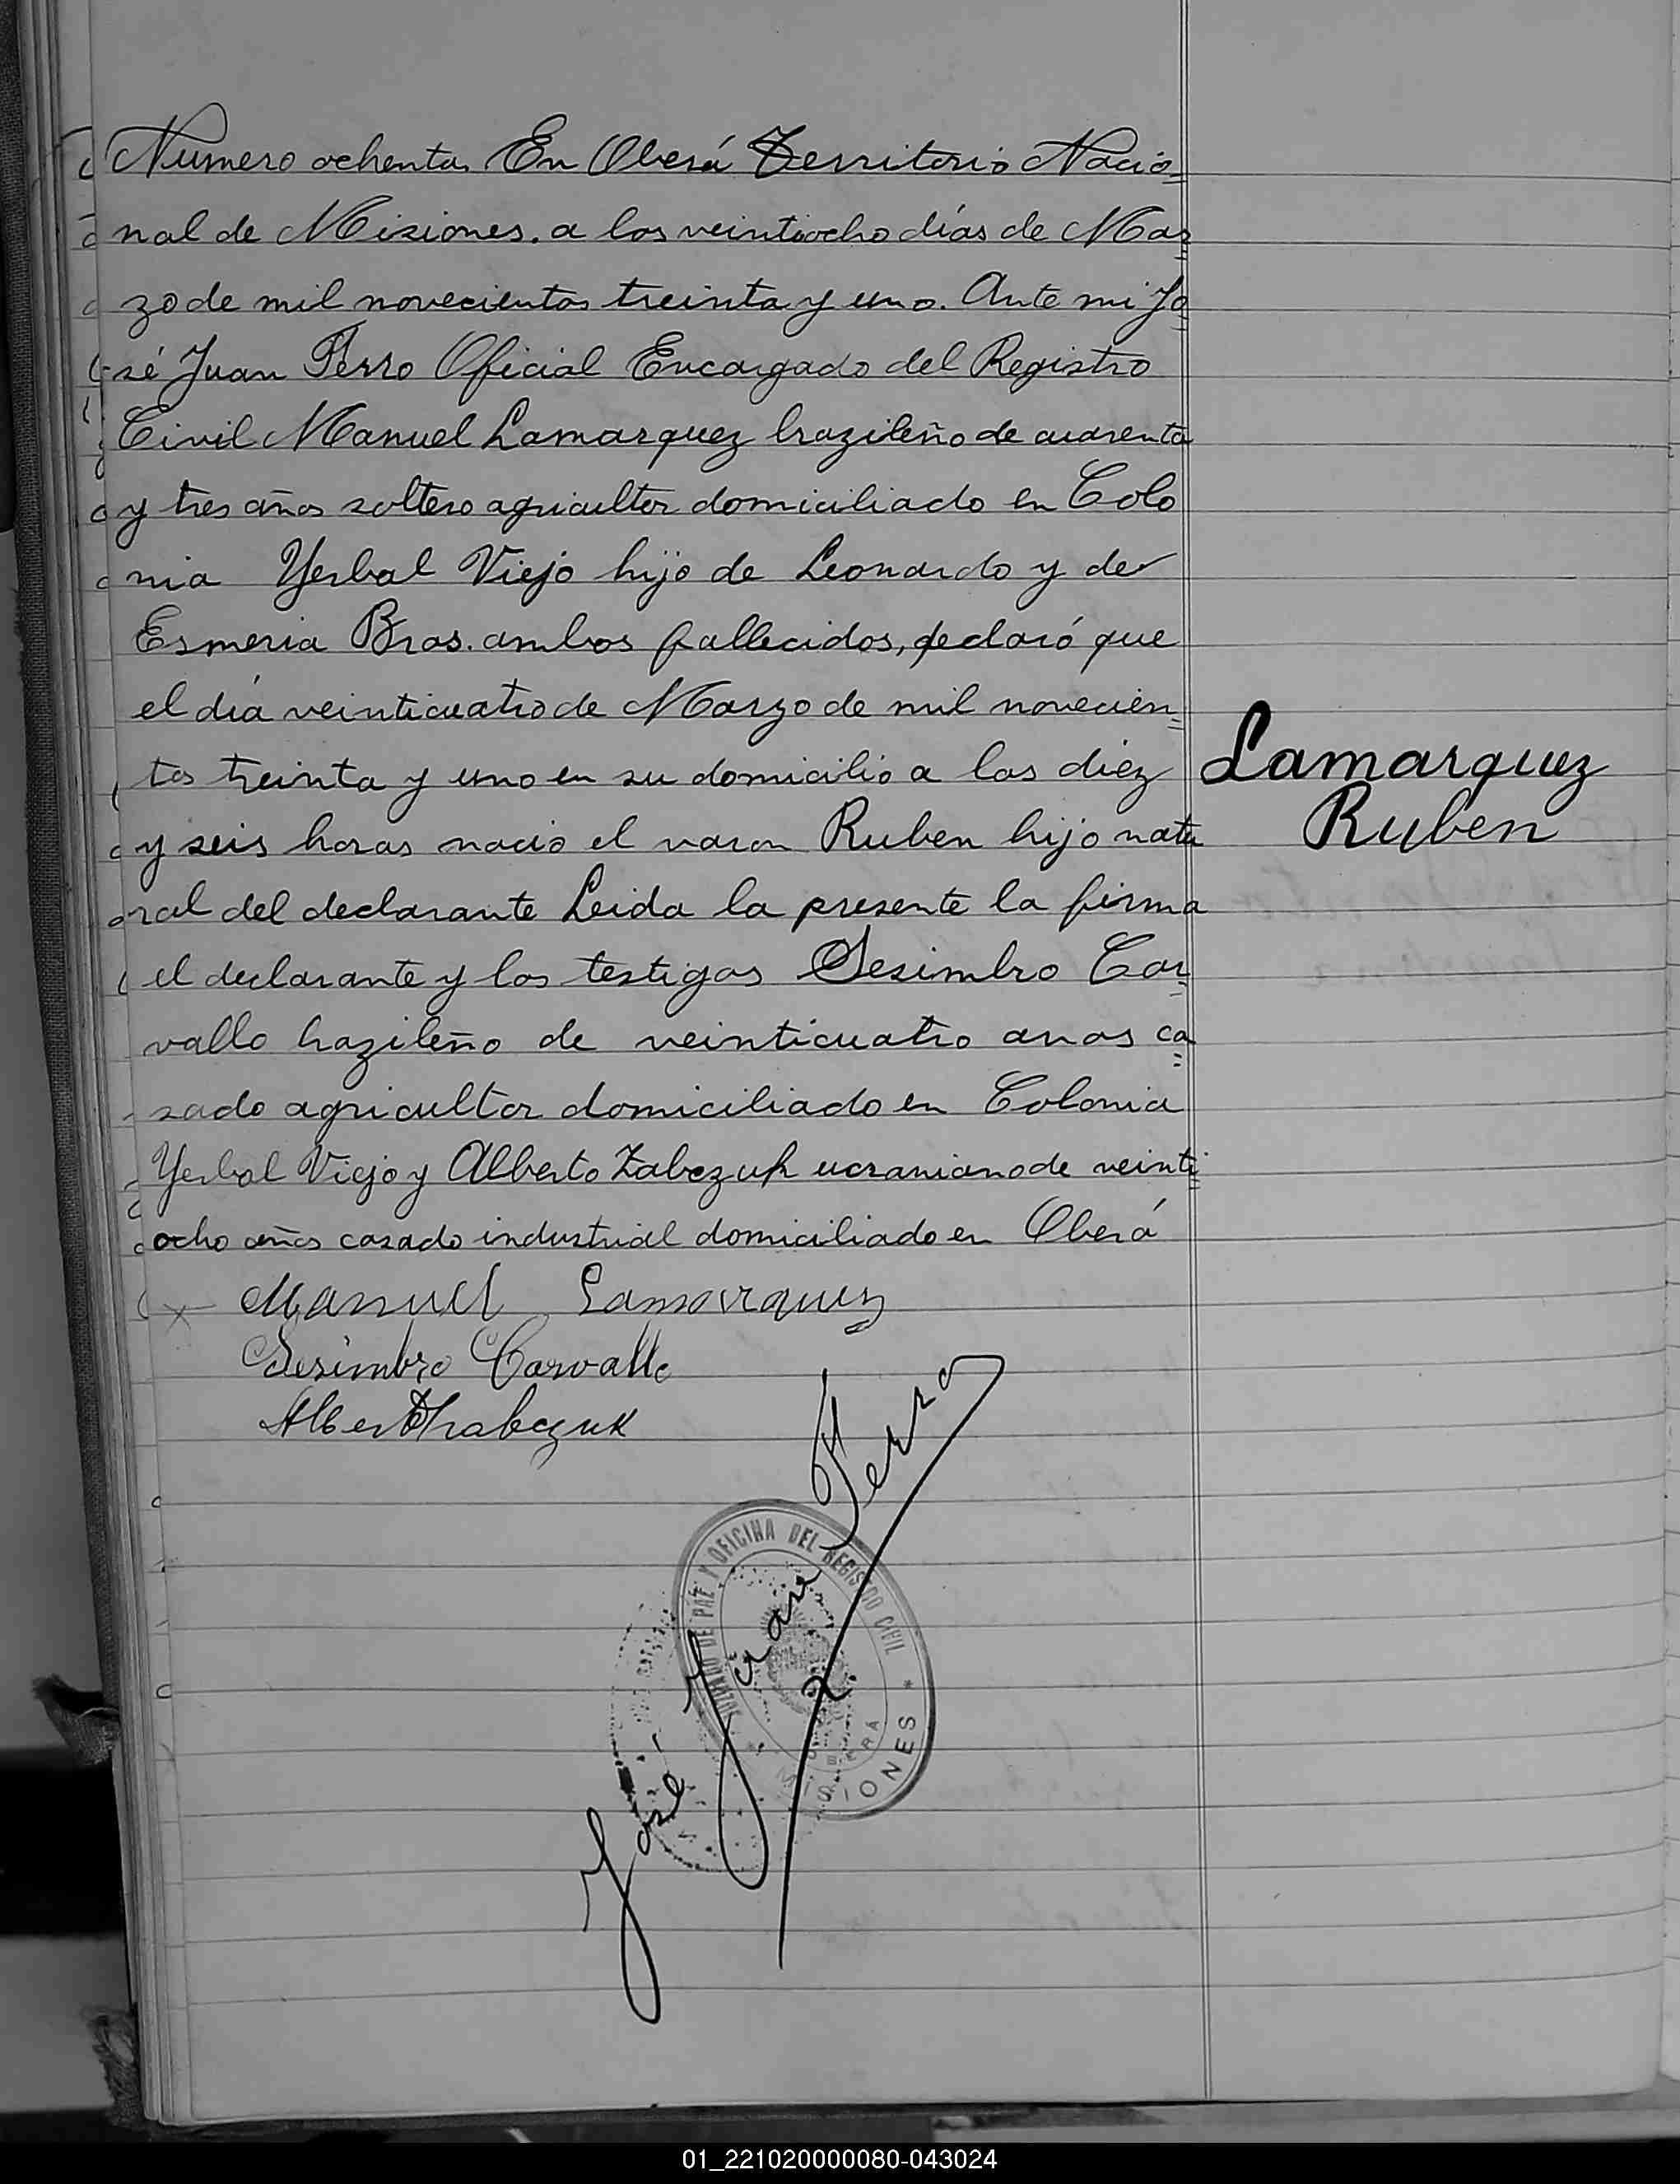 Numero ochenta. En Oberá Territorio Nacio=
nal de Misiones. a los veintiocho días de Mar=
zo de mil novecientos treinta y uno. Ante mi Jo=
sé Juan Ferro Oficial Encargado del Registro
Civil Manuel Lamarquez brazileño de cuarenta
y tres años soltero agricultor domiciliado en Colo
nia Yerbal Viejo hijo de Leonardo y de
Esmeria Bras. ambos fallecidos, declaró que
el día veinticuatro de Marzo de mil novecien=
tos treinta y uno en su domicilio a las diez
y seis horas nació el varon Ruben hijo natu
ral del declarante Leida la presente la firma
el declarante y los testigos Sesimbro Car=
vallo brazileño de veinticuatro anos ca=
sado agricultor domiciliado en Colonia
Yerbal Viejo y Alberto Zabczuk ucraniano de veinti=
ocho años casado industrial domiciliado en Oberá
Lamarquez
Ruben
Manuel Lamarquez
Sesimbro Carvallo
José Juan Ferro
JUZGADO DE PAZ Y OFICINA DEL REGISTRO CIVIL
OBERÁ
* MISIONES *
01_221020000080-043024